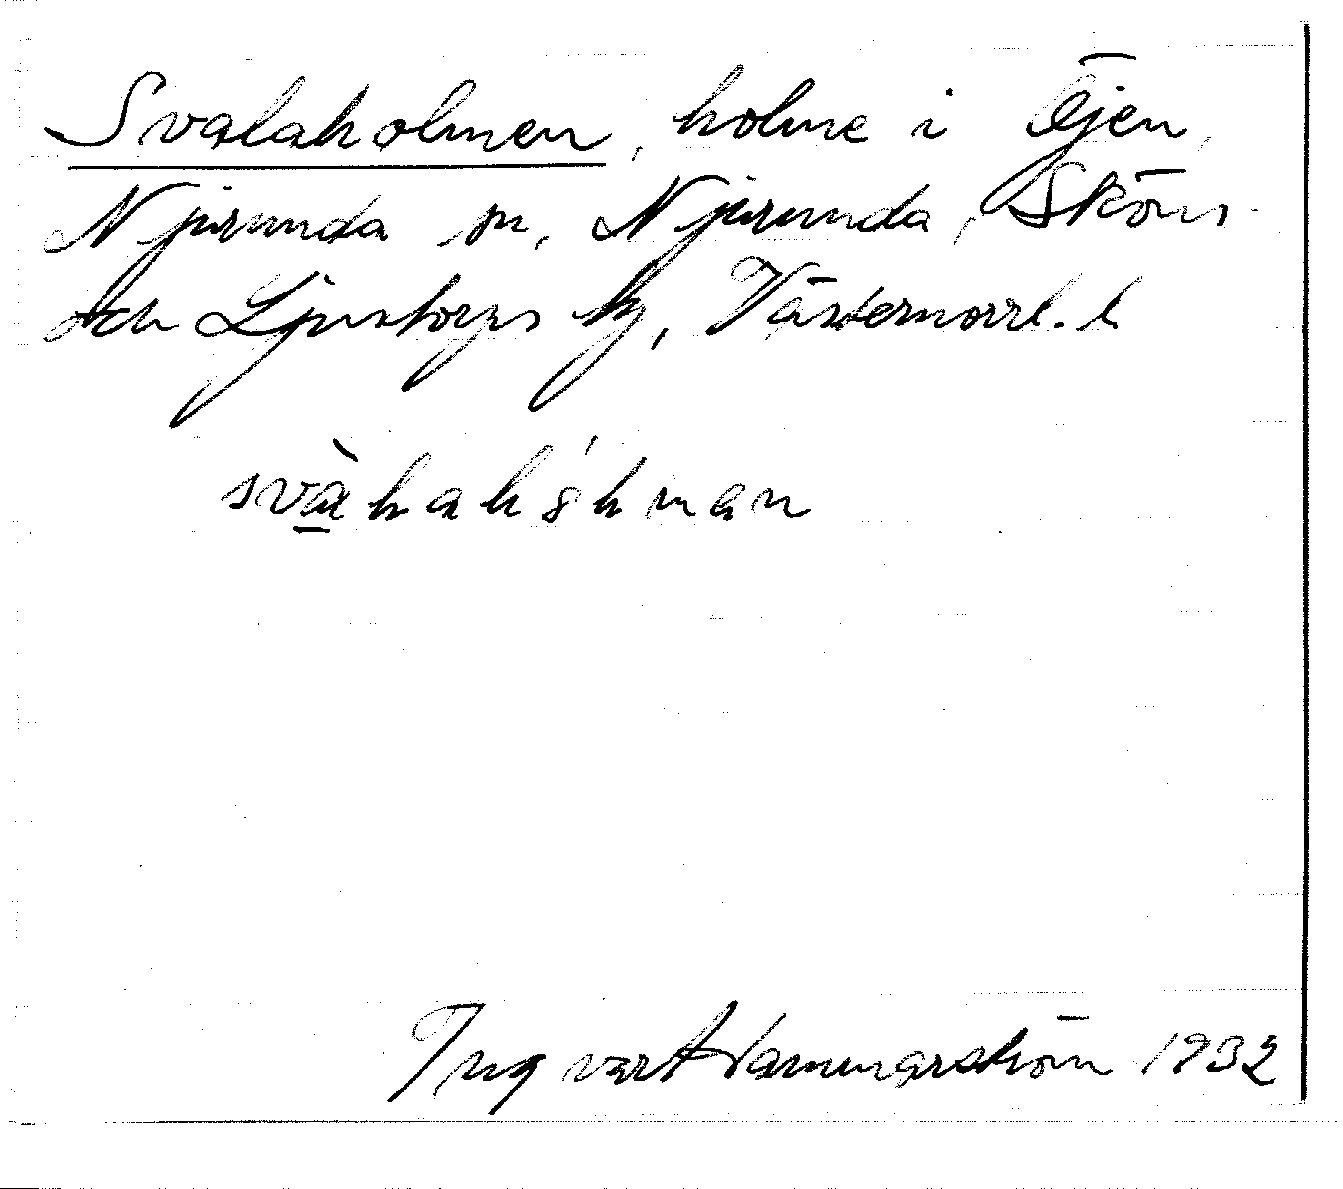 Svalaholmen, holme i Öjen,
Njurunda sn, Njurunda, Sköns
och Ljustorps tg, Västernorrl. l
Ingvar Hammarström 1932